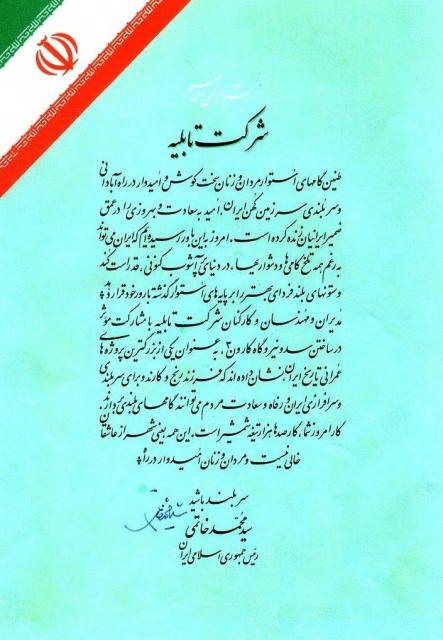 بسم الله الرحمن الرحیم
شرکت تابلیه
طنین گامهای استوار مردان و زنان سخت کوش و امیدوار در راه آبادانی
و سربلندی سرزمین کهن ایران، امید به سعادت و بهروزی را در عمق
ضمیر ایرانیان زنده کرده است. امروز به این باور رسیده ایم که ایران می تواند
به رغم همه تلخ کامی ها و دشواریها، در دنیای پر آشوب کنونی، قد راست کند
و ستونهای بلند فردای بهتر را بر پایه های استوار گذشته بارور خود قرار دهد.
مدیران و مهندسان و کارکنان شرکت تابلیه با مشارکت مؤثر
در ساختن سد و نیروگاه کارون ۳، به عنوان یکی از بزرگترین پروژه های
عمرانی تاریخ ایران نشان داده اند که فرزند رنج و کارند و برای سربلندی
و سرافرازی ایران و رفاه و سعادت مردم می توانند گامهای بلندی بردارند.
کار امروز شما، کار صدها هزار تیغه شمشیر است. این همه یعنی شهر از عاشقان
خالی نیست و مردان و زنان امیدوار در راهند.
سربلند باشید
سید محمد خاتمی
رئیس جمهوری اسلامی ایران